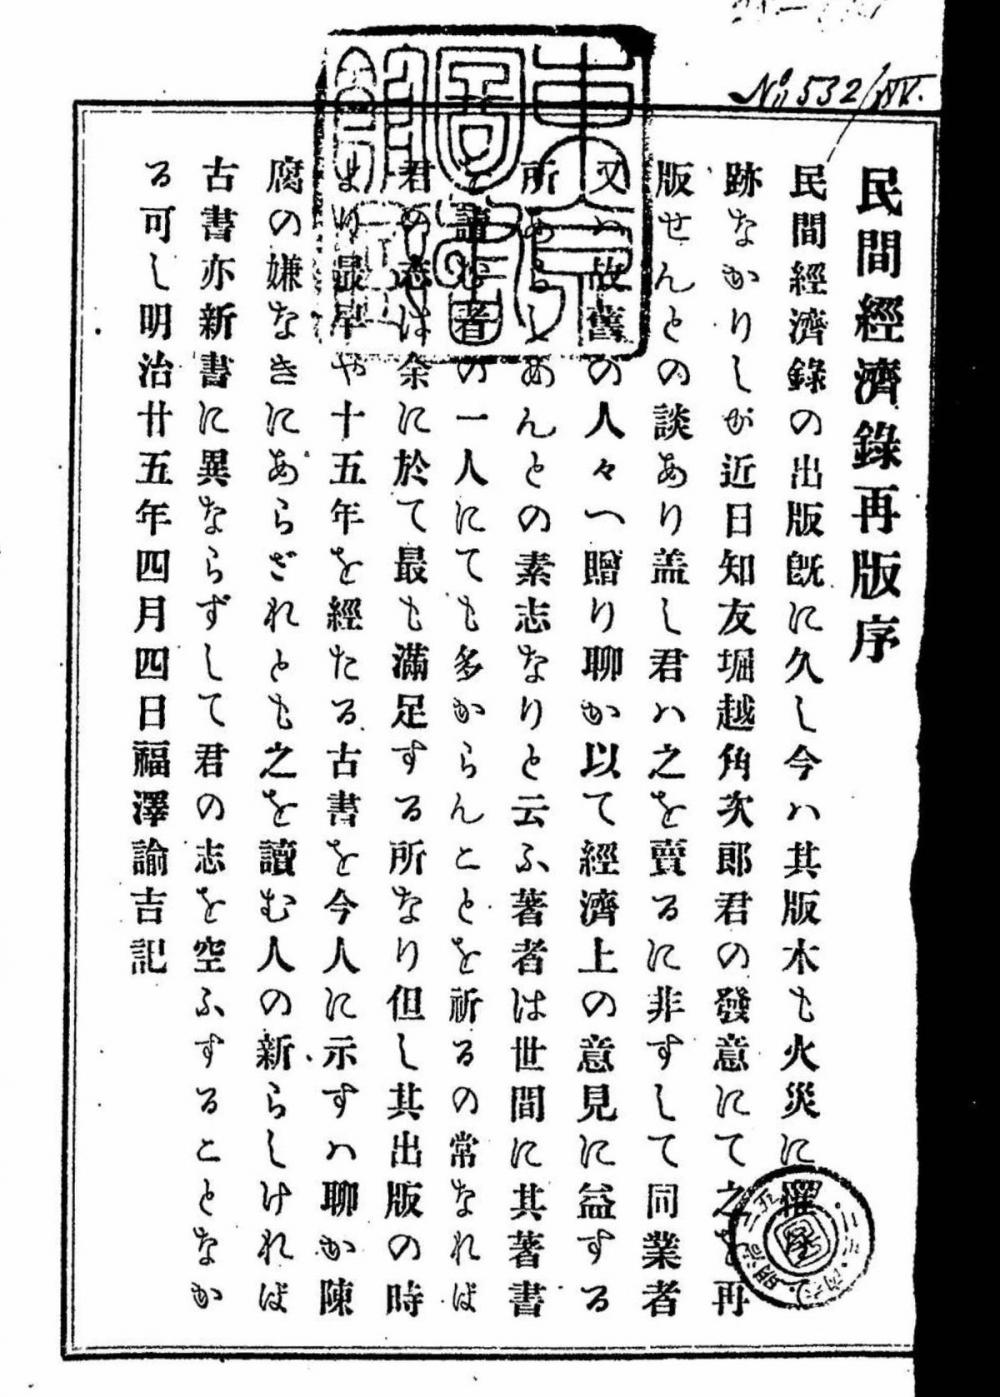 No. 532
民間經濟錄再版序
民間經濟錄の出版既に久し今ハ其版木も火災に罹て
跡なかりしが近日知友堀越角次郎君の發意にて之を再
版せんとの談あり盖し君ハ之を賣るに非すして同業者
又ハ故舊の人々へ贈り聊か以て經濟上の意見に益する
所あらしめんとの素志なりと云ふ著者は世間に其著書
を讀む者の一人にても多からんことを祈るの常なれば
君の志は余に於て最も滿足する所なり但し其出版の時
より最早や十五年を經たる古書を今人に示すハ聊か陳
腐の嫌なきにあらざれとも之を讀む人の新らしければ
古書亦新書に異ならずして君の志を空ふすることなか
る可し明治廿五年四月四日福澤諭吉記
東京
圖書
館